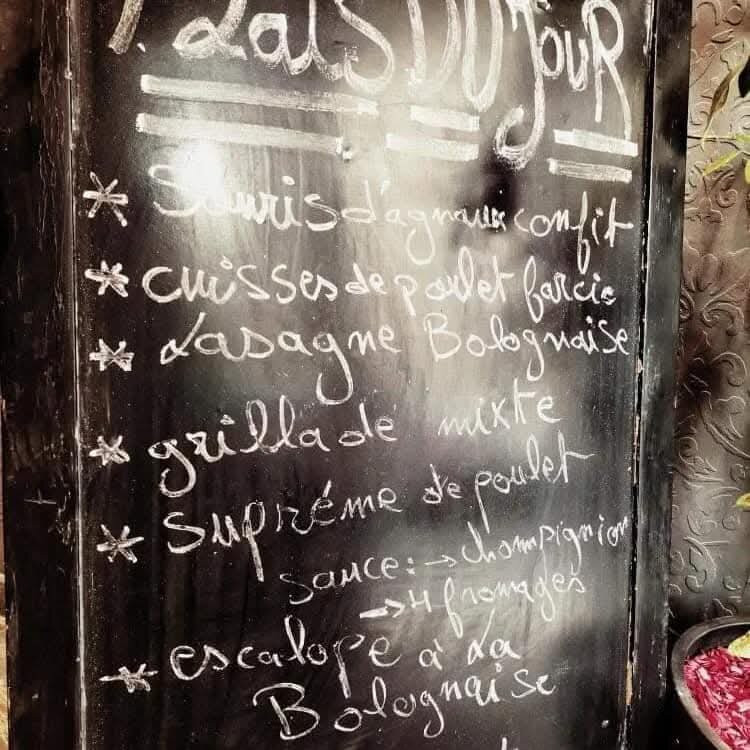 Plats DU JOUR
* Souris d'agneaux confit
* cuisses de poulet farcie
* Lasagne Bolognaise
* grillade mixte
* supréme de poulet
sauce: → champignion
→ 4 fromages
* escalope à La
Bolognaise